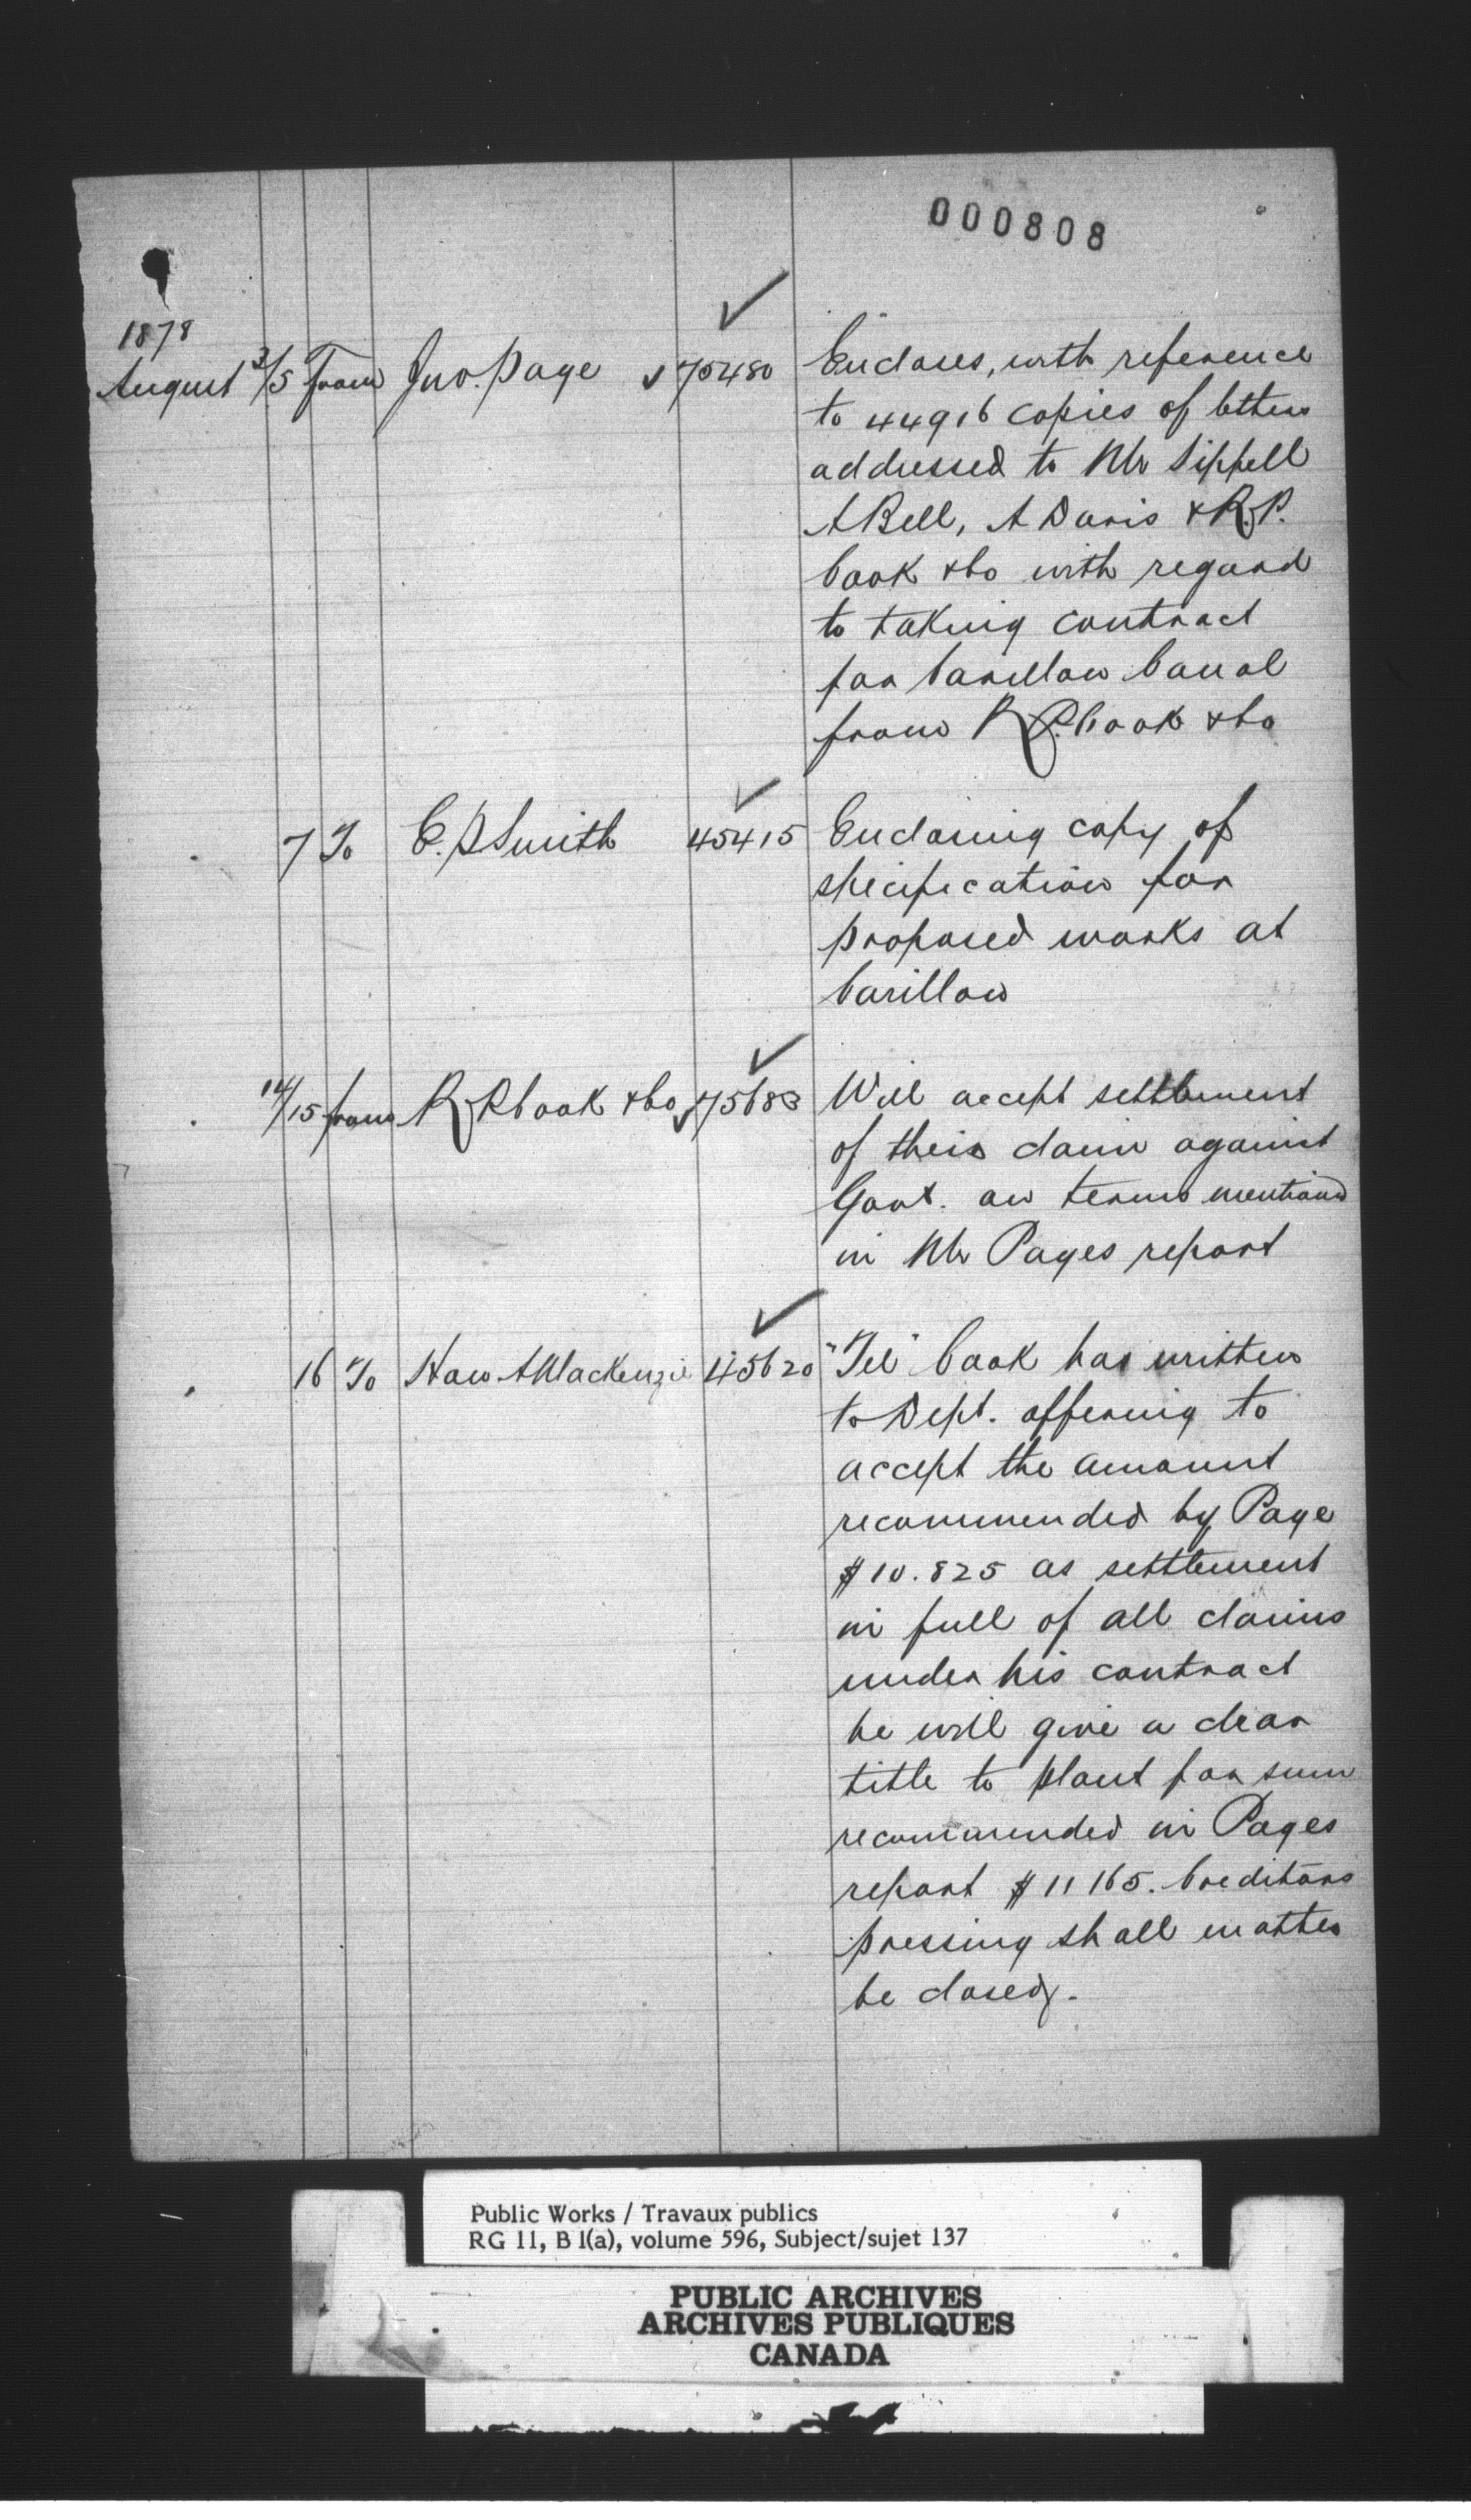 000808
1878
August 3/5 From Jno. Page 75480 Encloses, with reference
to 44916 copies of letters
addressed to Mr Sippell
A Bell, A Davis & R.P.
Cook & Co with regard
to taking contract
for Carillon Canal
from R P. Cook & Co
7 To C. P Smith 45415 Enclosing copy of
specification for
proposed works at
Carillon
14/15 from R P Cook & Co 75683 Will accept settlement
of their claim against
Govt. on terms mentioned
in Mr Pages report
16 To Hon A Mackenzie 45620 "Tel" Cook has written
to Dept. offering to
accept the amount
recommended by Page
$10.825 as settlement
in full of all claims
under his contract
he will give a clear
title to plant for sum
recommended in Pages
report $11165. Creditors
pressing shall matter
be closed.
Public Works / Travaux publics
RG 11, B 1(a), volume 596, Subject/sujet 137
PUBLIC ARCHIVES
ARCHIVES PUBLIQUES
CANADA